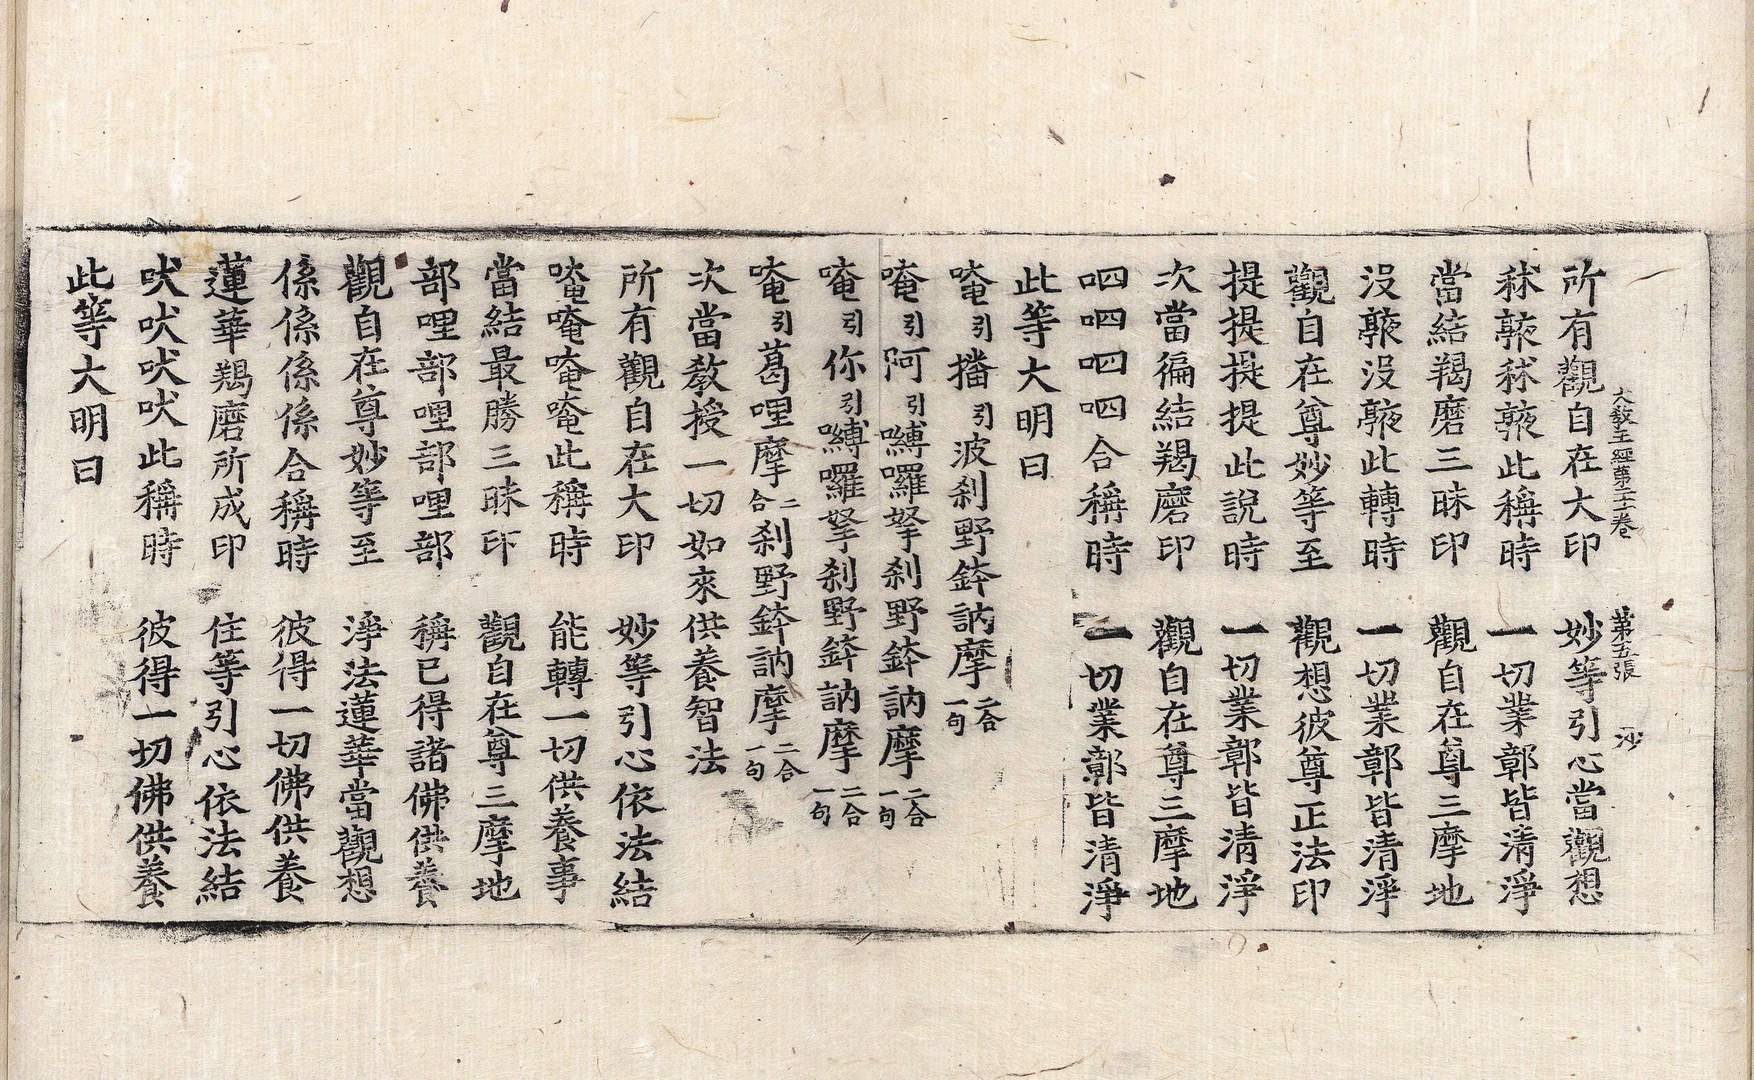 大教王經第二十卷 第五張 沙
所有觀自在大印 妙等引心當觀想
秫𩨭秫𩨭此稱時 一切業鄣皆清淨
當結羯磨三昧印 觀自在尊三摩地
沒𩨭沒𩨭此轉時 一切業鄣皆清淨
觀自在尊妙等至 觀想彼尊正法印
提提提提此說時 一切業鄣皆清淨
次當徧結羯磨印 觀自在尊三摩地
呬呬呬呬合稱時 一切業鄣皆清淨
此等大明曰
唵引播引波刹野鉢訥摩二合一句
唵引阿引嚩囉拏刹野鉢訥摩二合一句
唵引你引嚩囉拏刹野鉢訥摩二合一句
唵引葛哩摩二合刹野鉢訥摩二合一句
次當敎授一切如來供養智法
所有觀自在大印 妙等引心依法結
唵唵唵唵此稱時 能轉一切供養事
當結最勝三昧印 觀自在尊三摩地
部哩部哩部哩部 稱已得諸佛供養
觀自在尊妙等至 淨法蓮華當觀想
係係係係合稱時 彼得一切佛供養
蓮華羯磨所成印 住等引心依法結
吠吠吠吠此稱時 彼得一切佛供養
此等大明曰